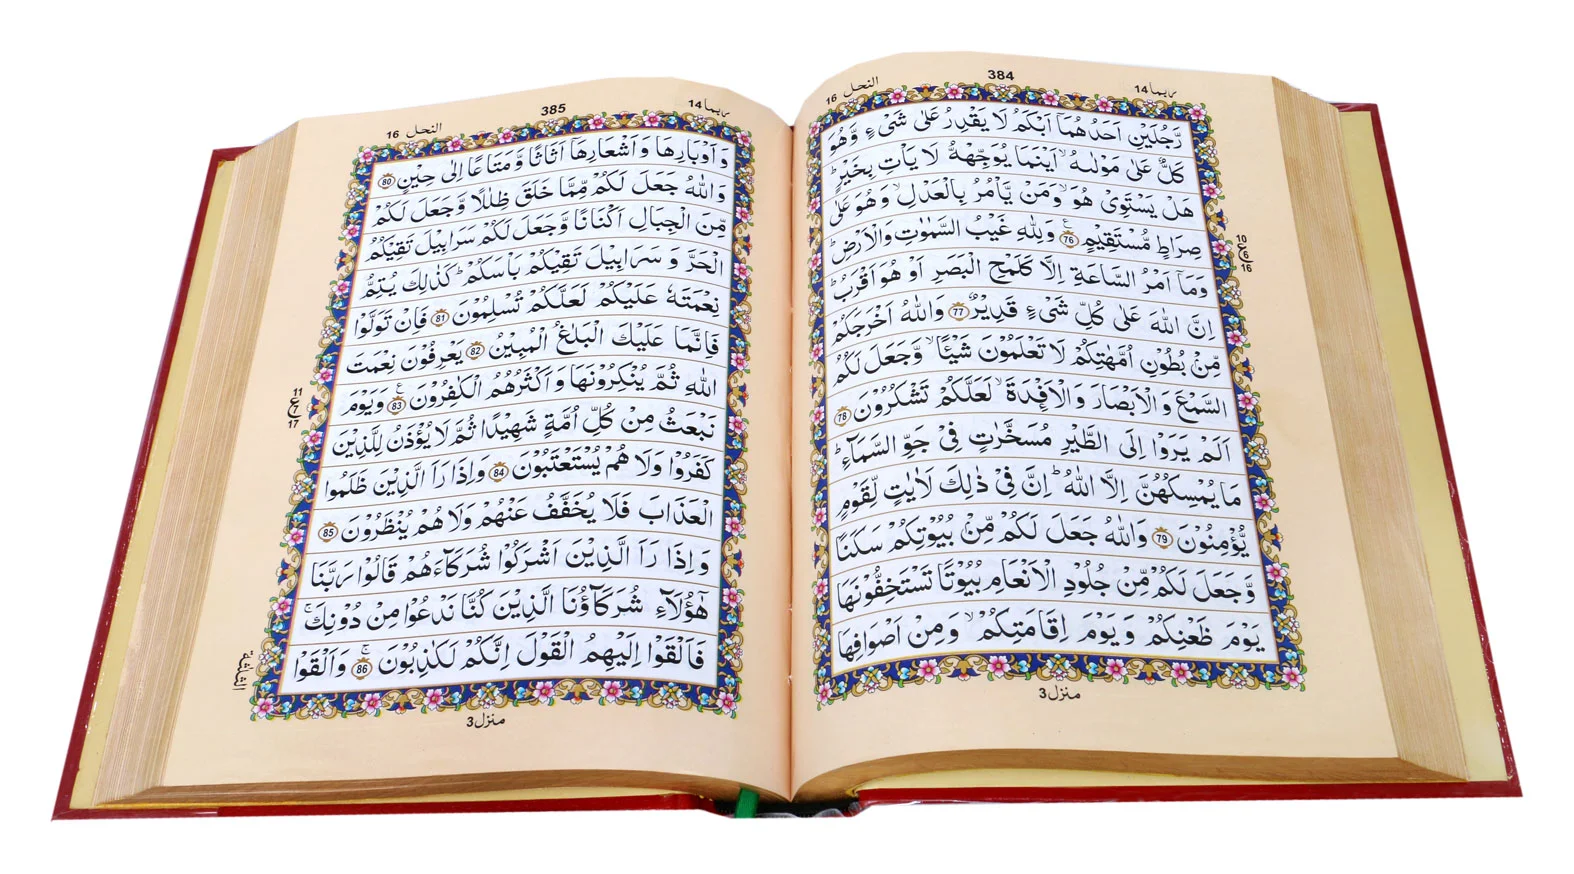 النحل 16
384
ربما 14
رَّجُلَيۡنِ اَحَدُهُمَاۤ اَبۡكَمُ لَا يَقۡدِرُ عَلٰى شَىۡءٍ وَّهُوَ
كَلٌّ عَلٰى مَوۡلٰٮهُ ۙ اَيۡنَمَا يُوَجِّهْهُّ لَا يَاۡتِ بِخَيۡرٍ‌ ؕ
هَلۡ يَسۡتَوِىۡ هُوَ ۙ وَمَنۡ يَّاۡمُرُ بِالۡعَدۡلِ‌ ۙ وَهُوَ عَلٰى
صِرَاطٍ مُّسۡتَقِيۡمٍ 76 وَلِلّٰهِ غَيۡبُ السَّمٰوٰتِ وَالۡاَرۡضِ‌ ؕ
وَمَاۤ اَمۡرُ السَّاعَةِ اِلَّا كَلَمۡحِ الۡبَصَرِ اَوۡ هُوَ اَقۡرَبُ‌ ؕ
اِنَّ اللّٰهَ عَلٰى كُلِّ شَىۡءٍ قَدِيۡرٌ 77 وَاللّٰهُ اَخۡرَجَكُمۡ
مِّنۡۢ بُطُوۡنِ اُمَّهٰتِكُمۡ لَا تَعۡلَمُوۡنَ شَيۡــًٔا ۙ وَّجَعَلَ لَكُمُ
السَّمۡعَ وَالۡاَبۡصَارَ وَالۡاَفۡـِٕدَةَ‌ ۙ لَعَلَّكُمۡ تَشۡكُرُوۡنَ 78
اَلَمۡ يَرَوۡا اِلَى الطَّيۡرِ مُسَخَّرٰتٍ فِىۡ جَوِّ السَّمَآءِ ؕ
مَا يُمۡسِكُهُنَّ اِلَّا اللّٰهُ‌ؕ اِنَّ فِىۡ ذٰلِكَ لَاٰيٰتٍ لِّقَوۡمٍ
يُّؤۡمِنُوۡنَ 79 وَاللّٰهُ جَعَلَ لَـكُمۡ مِّنۡۢ بُيُوۡتِكُمۡ سَكَنًا
وَّجَعَلَ لَـكُمۡ مِّنۡ جُلُوۡدِ الۡاَنۡعَامِ بُيُوۡتًا تَسۡتَخِفُّوۡنَهَا
يَوۡمَ ظَعۡنِكُمۡ وَيَوۡمَ اِقَامَتِكُمۡ‌ۙ وَمِنۡ اَصۡوَافِهَا
10
ع
6
16
منزل 3
النحل 16
385
ربما 14
وَاَوۡبَارِهَا وَاَشۡعَارِهَاۤ اَثَاثًا وَّمَتَاعًا اِلٰى حِيۡنٍ 80
وَاللّٰهُ جَعَلَ لَـكُمۡ مِّمَّا خَلَقَ ظِلٰلًا وَّجَعَلَ لَـكُمۡ
مِّنَ الۡجِبَالِ اَكۡنَانًا وَّجَعَلَ لَـكُمۡ سَرَابِيۡلَ تَقِيۡكُمُ
الۡحَـرَّ وَ سَرَابِيۡلَ تَقِيۡكُمۡ بَاۡسَكُمۡ‌ؕ كَذٰلِكَ يُتِمُّ
نِعۡمَتَهٗ عَلَيۡكُمۡ لَعَلَّكُمۡ تُسۡلِمُوۡنَ 81 فَاِنۡ تَوَلَّوۡا
فَاِنَّمَا عَلَيۡكَ الۡبَلٰغُ الۡمُبِيۡنُ 82 يَعۡرِفُوۡنَ نِعۡمَتَ
اللّٰهِ ثُمَّ يُنۡكِرُوۡنَهَا وَاَكۡثَرُهُمُ الۡكٰفِرُوۡنَ 83 وَيَوۡمَ
نَـبۡعَثُ مِنۡ كُلِّ اُمَّةٍ شَهِيۡدًا ثُمَّ لَا يُؤۡذَنُ لِلَّذِيۡنَ
كَفَرُوۡا وَلَا هُمۡ يُسۡتَعۡتَبُوۡنَ 84 وَاِذَا رَاَ الَّذِيۡنَ ظَلَمُوا
الۡعَذَابَ فَلَا يُخَفَّفُ عَنۡهُمۡ وَلَا هُمۡ يُنۡظَرُوۡنَ 85
وَ اِذَا رَاَ الَّذِيۡنَ اَشۡرَكُوۡا شُرَكَآءَهُمۡ قَالُوۡا رَبَّنَا
هٰٓؤُلَاۤءِ شُرَكَآؤُنَا الَّذِيۡنَ كُنَّا نَدۡعُوۡا مِنۡ دُوۡنِكَ‌ۚ
فَاَلۡقَوۡا اِلَيۡهِمُ الۡقَوۡلَ اِنَّكُمۡ لَـكٰذِبُوۡنَ‌ۚ 86 وَاَلۡقَوۡا
11
ع
7
17
الثلثة
منزل 3